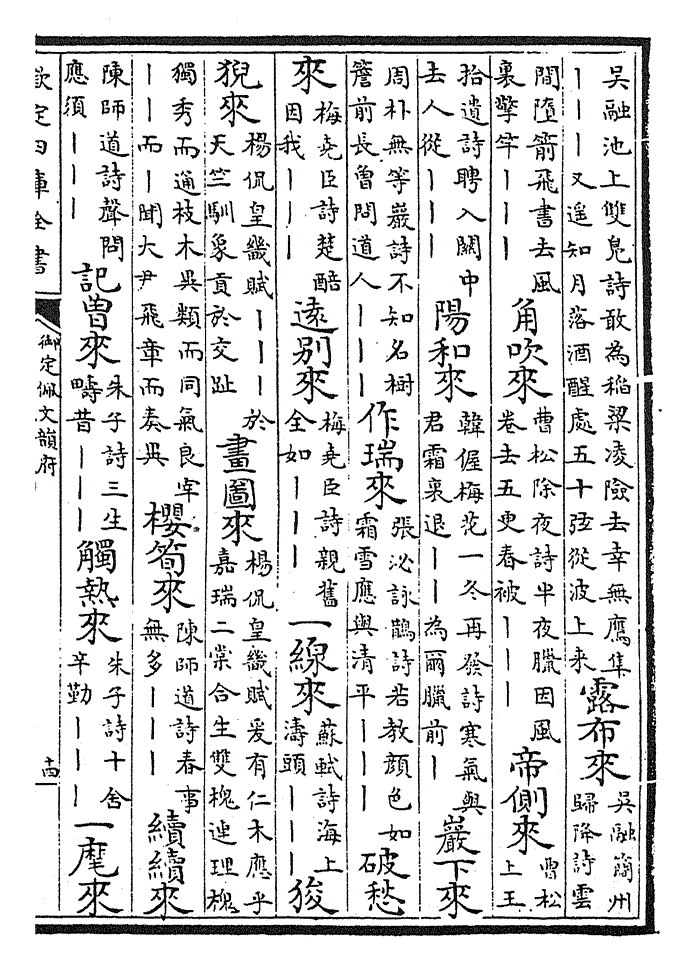 吳融池上雙鳧詩敢為稻粱凌險去幸無鷹集
｜｜｜又遥知月落酒醒處五十弦從波上来
露布來
吳融簡州
歸降詩雲
間墮箭飛書去風
裏擎竿｜｜｜
角吹來
曹松除夜詩半夜臘因風
卷去五更春被｜｜｜
帝側來
曹松
上王
拾遺詩聘入關中
去人從｜｜｜
陽和來
韓偓梅花一冬再發詩寒氣與
君霜裏退｜｜為爾臘前｜
巖下來
周朴無等巖詩不知名樹
簷前長曾問道人｜｜｜
作瑞來
張泌詠鵲詩若教顔色如
霜雪應與清平｜｜｜
破愁
來
梅堯臣詩楚醅
因我｜｜｜
遠别來
梅堯臣詩親舊
全如｜｜｜
一線來
蘇軾詩海上
濤頭｜｜｜
狻
猊來
楊侃皇畿賦｜｜｜於
天竺馴象貢於交趾
畫圖來
楊侃皇畿賦爰有仁木應乎
嘉瑞二棠合生雙槐連理槐
獨秀而通枝木異類而同氣良宰
｜｜而｜聞大尹飛章而奏異
櫻筍來
陳師道詩春事
無多｜｜｜
續續來
陳師道詩聲問
應須｜｜｜
記曽來
朱子詩三生
疇昔｜｜｜
觸熱來
朱子詩十舍
辛勤｜｜｜
一麾來
欽定四庫全書
御定佩文韻府
十四